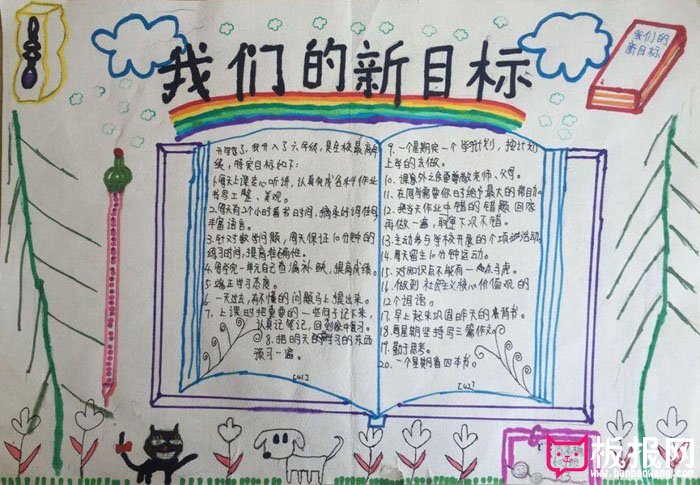 我们的新目标
我们的
新目标
开学了,我升入了六年级,是全校最高年
级,特定目标如下:
1.每天上课专心听讲,认真完成各科作业
书写工整、美观。
2.每天有2个小时看书时间,摘录好词佳句
丰富语言。
3.针对数学问题,每天保证10分钟的
练习时间,提高准确性。
4.每学完一单元自己查漏补缺,提高成绩。
5.端正学习态度。
6.一天过去,有不懂的问题马上提出来。
7.上课时把重要的一些句子记下来,
认真记笔记,回到家中复习。
8.把明天的要学习的东西
预习一遍。
[41]
9.一个星期定一个学习计划,按计划
上学的去做。
10.课意外之后要尊敬老师、父母。
11.在同学需要你时给予最大的帮助。
12.把当天作业中错的错题回家
再做一遍,取保下次不错。
13.主动参与学校开展的个项进活动。
14.每天留主10分钟运动。
15.对知识点不能有一点点马虎。
16.做到社会主义核心价值观的
12个词语。
17.早上起来巩固昨天的看背书。
18.每星期坚持写三篇作文。
19.勤于思考。
20.一个星期看四本书。
[42]
板报网
www.banbaowang.com